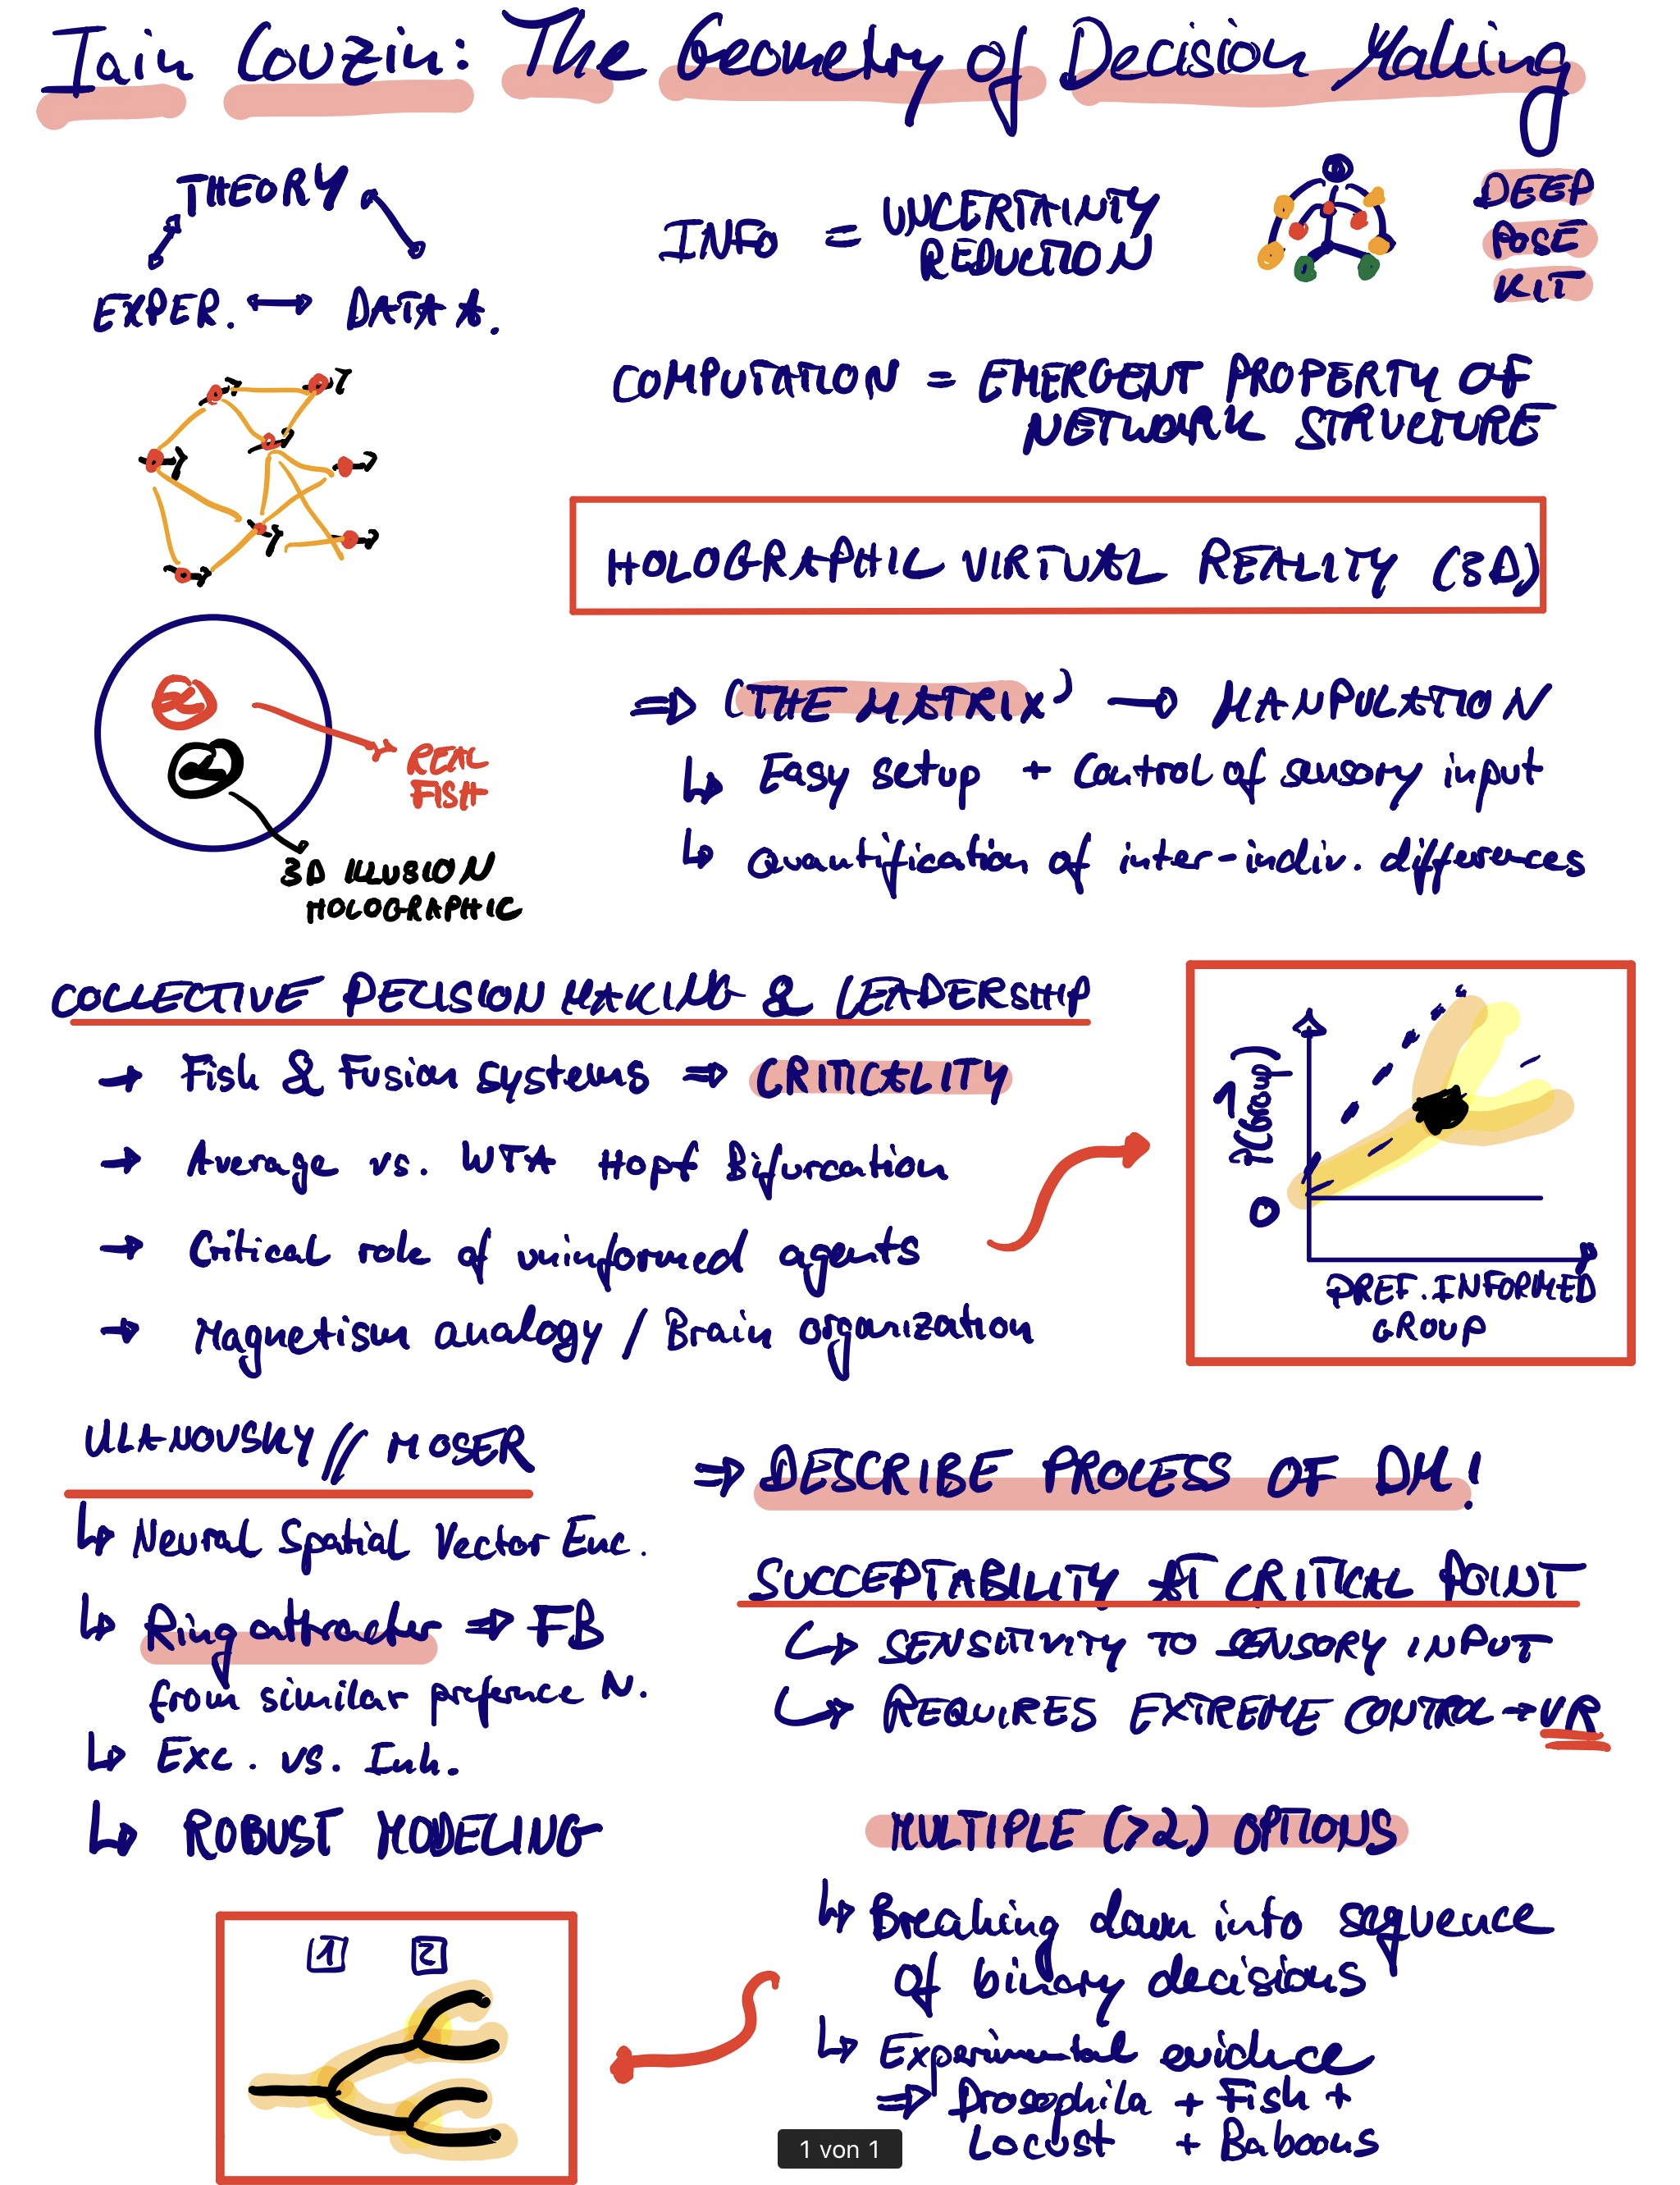 Iain Couzin: The Geometry of Decision Making
THEORY
EXPER. ↔ DATA A.
INFO = UNCERTAINTY
REDUCTION
DEEP
POSE
KIT
COMPUTATION = EMERGENT PROPERTY OF
NETWORK STRUCTURE
HOLOGRAPHIC VIRTUAL REALITY (3D)
REAL
FISH
3D ILLUSION
HOLOGRAPHIC
⇒ 'THE MATRIX' → MANPULATION
↳ Easy setup + Control of sensory input
↳ Quantification of inter-indiv. differences
COLLECTIVE DECISION MAKING & LEADERSHIP
→ Fish & Fusion systems ⇒ CRITICALITY
→ Average vs. WTA Hopf Bifurcation
→ Critical role of uninformed agents
→ Magnetism analogy / Brain organization
1
P(Group)
0
PREF. INFORMED
GROUP
ULANOVSKY // MOSER
↳ Neural Spatial Vector Enc.
↳ Ring attractor ⇒ FB
from similar preference N.
↳ Exc. vs. Inh.
↳ ROBUST MODELING
⇒ DESCRIBE PROCESS OF DM!
SUCCEPTABILITY AT CRITICAL POINT
↳ SENSITIVITY TO SENSORY INPUT
↳ REQUIRES EXTREME CONTROL → VR
MULTIPLE (>2) OPTIONS
↳ Breaking down into sequence
of binary decisions
↳ Experimental evidence
⇒ Drosophila + Fish +
Locust + Baboons
1 2
1 von 1